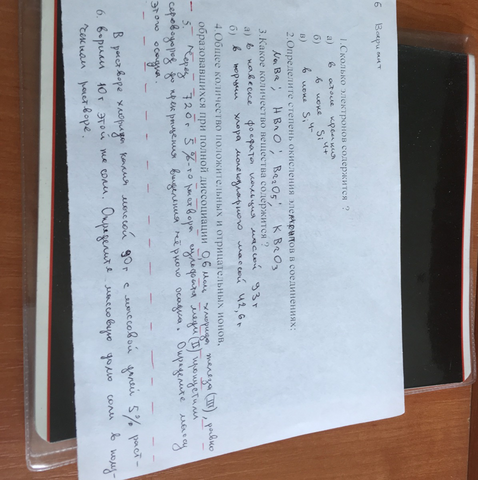 6 Вариант
1.Сколько электронов содержится ?
а) в атоме кремния
б) в ионе Si 4+
в) в ионе Si 4-
2.Определите степень окисления элементов в соединениях:
NaBr; HBrO; Br₂O₅; KBrO₃
3.Какое количество вещества содержится ?
а) в навеске фосфата кальция массой 93 г
б) в порции хлора молекулярного массой 42,6 г.
4.Общее количество положительных и отрицательных ионов,
образовавшихся при полной диссоциации 0,6 моль хлорида железа (III), равно
5. Через 720 г 5%-го раствора сульфата меди (II) пропустили
сероводород до прекращения выделения чёрного осадка. Определите массу
этого осадка.
6. В растворе хлорида калия массой 90 г с массовой долей 5% раст-
ворили 10 г этой же соли. Определите массовую долю соли в полу-
ченном растворе.